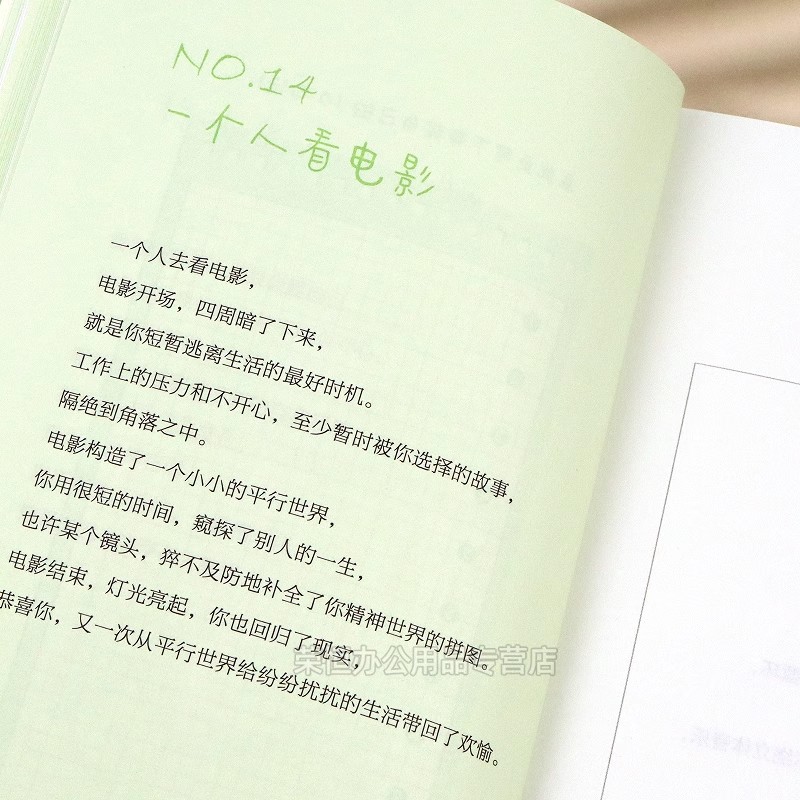 NO.14
一个人看电影
一个人去看电影，
电影开场，四周暗了下来，
就是你短暂逃离生活的最好时机。
工作上的压力和不开心，至少暂时被你选择的故事，
隔绝到角落之中。
电影构造了一个小小的平行世界，
你用很短的时间，窥探了别人的一生，
也许某个镜头，猝不及防地补全了你精神世界的拼图。
电影结束，灯光亮起，你也回归了现实，
恭喜你，又一次从平行世界给纷纷扰扰的生活带回了欢愉。
荣恒办公用品专营店